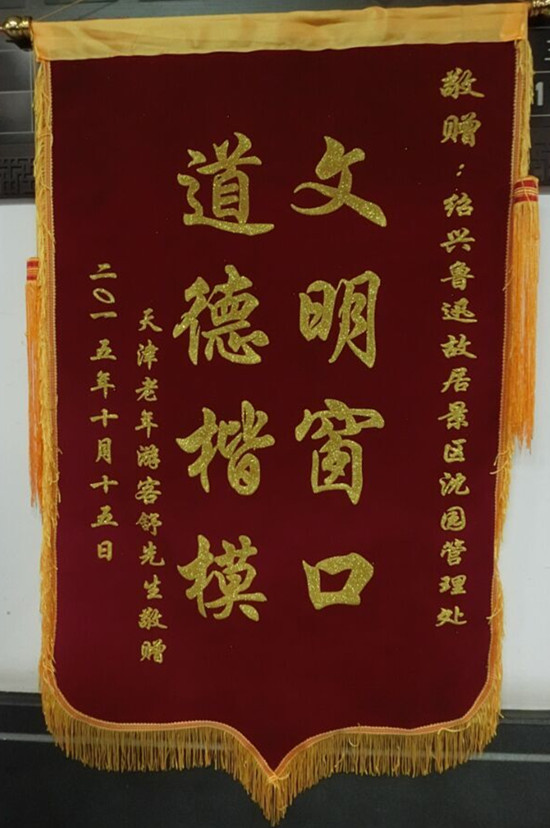 敬赠：绍兴鲁迅故居景区沈园管理处
文明窗口
道德楷模
天津老年游客舒先生敬赠
二〇一五年十月十五日